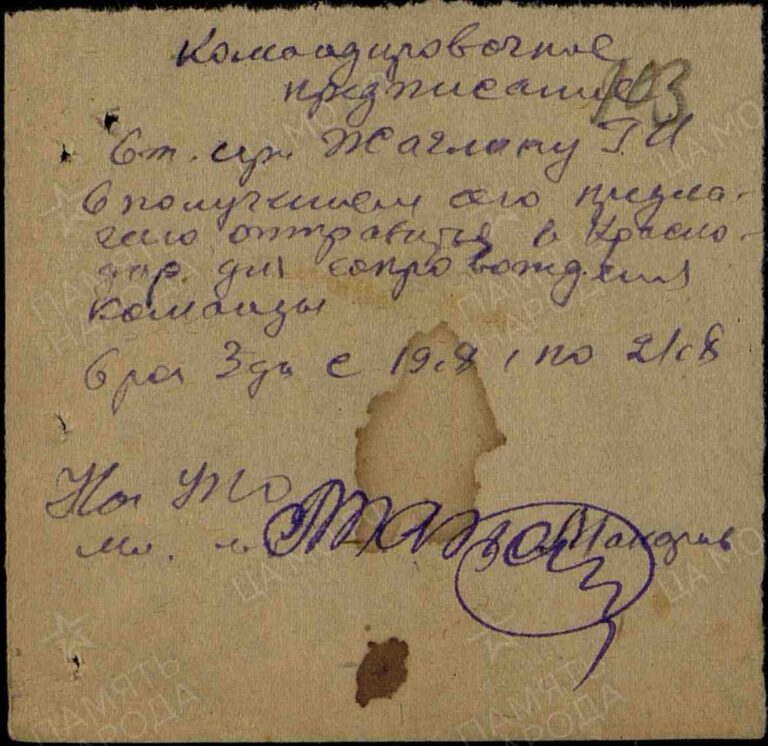 Командировочное
предписание 103
Ст. сер. Жаглину Г.И
С получением сего предла-
гаю отправиться в Красно-
дар для сопровождения
команды
Срок 3 дн с 19.8 по 21.8
Нач
Мл. л-
ПАМЯТЬ НАРОДА
ЦА МО